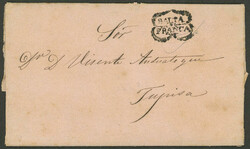 SALTA
FRANCA
Sōr
Dn. D. Vicente Anzoategui
Tupisa